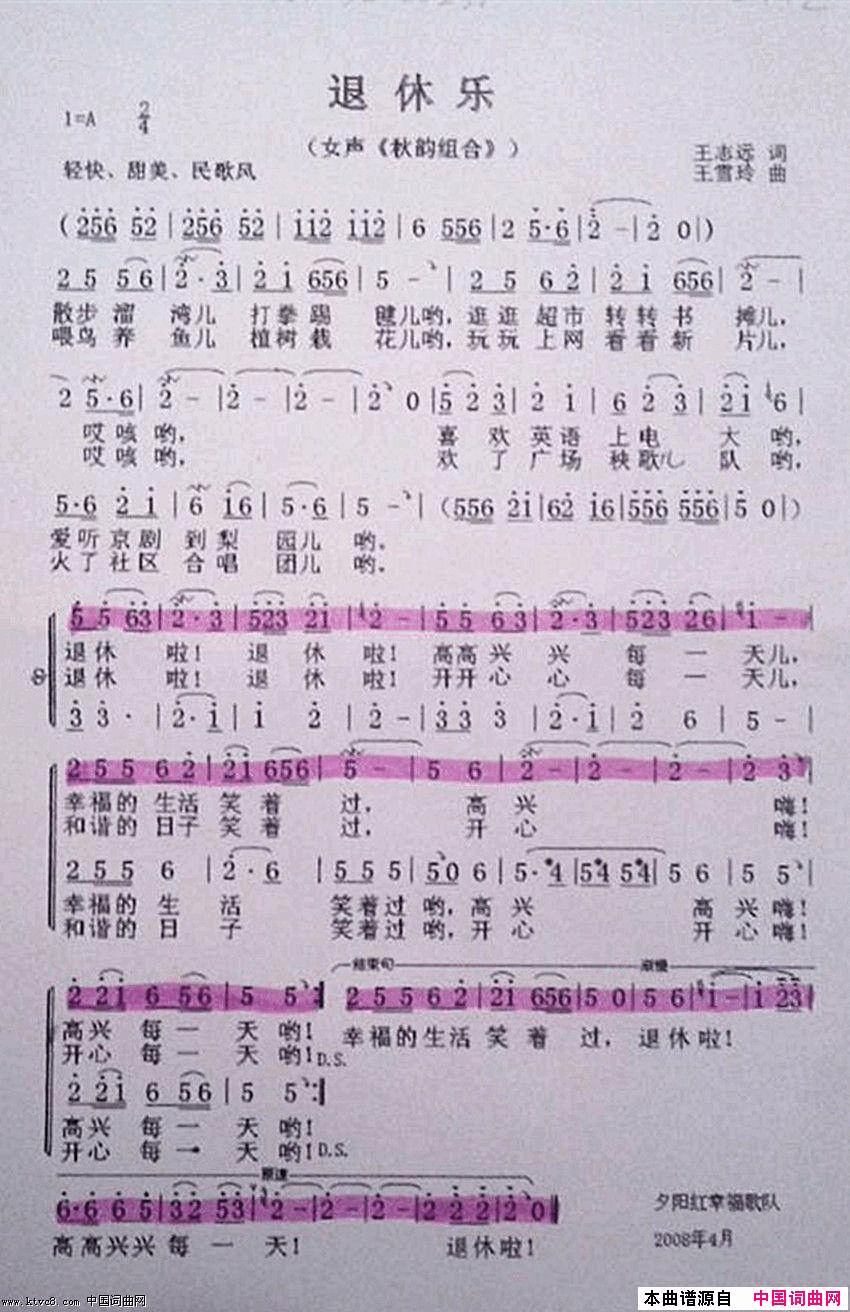 退休乐
1=A 2/4
（女声《秋韵组合》）
轻快、甜美、民歌风
王志远 词
王雪玲 曲
(256 52|256 52|112 112|6 556|2 5·6|2 -|2 0|)
2 5 56|2·3|2 1 656|5 -|2 5 62|
散步 溜 湾儿 打拳踢 毽儿哟，逛逛 超市 转转 书 摊儿，
喂鸟 养 鱼儿 植树栽 花儿哟，玩玩 上网 看看 新 片儿，
2 5·6|2 -|2 -|2 -|2 0|5 2 3|2 1|6 2 3|2 1 6|
哎咳哟， 喜 欢英语 上电 大 哟，
哎咳哟， 欢 了广场 秧歌儿 队 哟，
5·6 2 1|6 16|5·6|5 -|(556 21|62 16|556 556|2 0|)
爱听京剧 到梨 园儿 哟。
火了社区 合唱 团儿 哟。
5 5 63|2·3|523 21|2 -|5 5 63|2·3|523 26|1 -|
退休 啦！ 退 休 啦！高高兴 兴 每 一 天儿，
退休 啦！ 退 休 啦！开开心 心 每 一 天儿，
3 3·|2·1|1 2|2 -|3 3 3|2·1|2 6|5 -|
2 5 5 6 2|21 656|5 -|5 6|2 -|2 -|2 -|2 3|
幸福的 生活 笑着 过， 高兴 嗨！
和谐的 日子 笑着 过， 开心 嗨！
2 5 5 6|2·6|5 5 5|5 0 6|5·4|54 54|5 6|5 5|
幸福的 生 活 笑着过 哟，高兴 高兴嗨！
和谐的 日 子 笑着过 哟，开心 开心嗨！
结束句 渐慢
2 21 6 56|5 5:| 2 5 5 6 2|21 656|5 0|5 6|1 -|1 23|
高兴 每一 天 哟！ 幸福的生活 笑 着 过，退休啦！
开心 每一 天 哟！D.S.
2 21 6 56|5 5:|
高兴 每一 天 哟！
开心 每一 天 哟！D.S.
原速
6·6 6 5|32 53|2 -|2 -|2 2 2|2 0|
高高兴兴 每 一 天！ 退休啦！
夕阳红幸福歌队
2008年4月
www.ktvc8.com 中国词曲网
本曲谱源自 中国词曲网